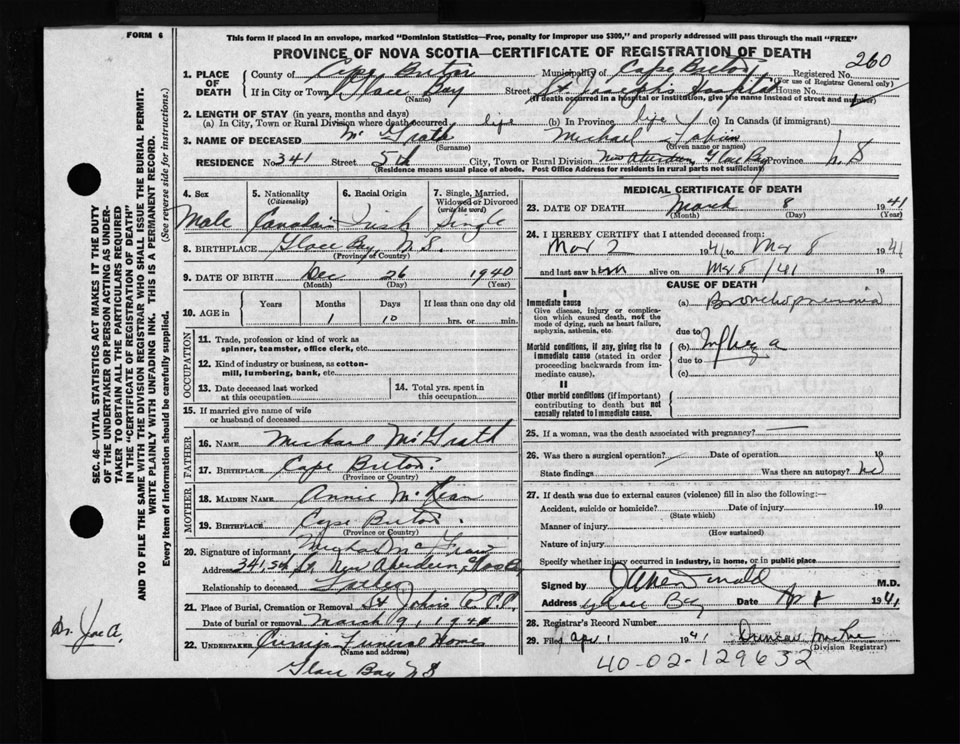 FORM 6
This form if placed in an envelope, marked "Dominion Statistics—Free, penalty for improper use $300," and properly addressed will pass through the mail "FREE"
PROVINCE OF NOVA SCOTIA—CERTIFICATE OF REGISTRATION OF DEATH
260
1. PLACE OF DEATH
County of Cape Breton Municipality of Cape Breton Registered No.
(For use of Registrar General only)
If in City or Town Glace Bay Street St. Josephs Hospital House No.
(Name) (If death occurred in a hospital or institution, give the name instead of street and number)
2. LENGTH OF STAY (in years, months and days)
(a) In City, Town or Rural Division where death occurred life (b) In Province life (c) In Canada (if immigrant)
3. NAME OF DECEASED McGrath Michael
(Surname) (Given name or names)
RESIDENCE No. 341 Street 5th City, Town or Rural Division New Aberdeen, Glace Bay Province N.S
(Residence means usual place of abode. Post Office Address for residents in rural parts not sufficient)
4. Sex
Male
5. Nationality (Citizenship)
Canadian
6. Racial Origin
Irish
7. Single, Married, Widowed or Divorced (write the word)
Single
8. BIRTHPLACE Glace Bay, N.S.
(Province or Country)
9. DATE OF BIRTH Dec 26 1940
(Month) (Day) (Year)
10. AGE in
Years Months Days If less than one day old
1 10 hrs. or min.
OCCUPATION
11. Trade, profession or kind of work as spinner, teamster, office clerk, etc.
12. Kind of industry or business, as cotton-mill, lumbering, bank, etc.
13. Date deceased last worked at this occupation
14. Total yrs. spent in this occupation
15. If married give name of wife or husband of deceased
FATHER
16. NAME Michael McGrath
17. BIRTHPLACE Cape Breton.
(Province or Country)
MOTHER
18. MAIDEN NAME Annie McLean
19. BIRTHPLACE Cape Breton.
(Province or Country)
20. Signature of informant
Address 341, 5th St. New Aberdeen, Glace Bay
Relationship to deceased Father
21. Place of Burial, Cremation or Removal St. Johns
Date of burial or removal March 9, 1941
22. UNDERTAKER Funeral Home
(Name and address)
Glace Bay NS
MEDICAL CERTIFICATE OF DEATH
23. DATE OF DEATH March 8 1941
(Month) (Day) (Year)
24. I HEREBY CERTIFY that I attended deceased from:
Mar 2 1941 to Mar 8 1941
and last saw him alive on Mar 8 /41 19
CAUSE OF DEATH
I
Immediate cause
Give disease, injury or complication which caused death, not the mode of dying, such as heart failure, asphyxia, asthenia, etc.
(a) Bronchopneumonia
due to
Morbid conditions, if any, giving rise to immediate cause (stated in order proceeding backwards from immediate cause).
(b)
due to
(c)
II
Other morbid conditions (if important) contributing to death but not causally related to immediate cause.
25. If a woman, was the death associated with pregnancy?
26. Was there a surgical operation? Date of operation 19
State findings Was there an autopsy? no
27. If death was due to external causes (violence) fill in also the following:—
Accident, suicide or homicide? Date of injury 19
(State which)
Manner of injury
(How sustained)
Nature of injury
Specify whether injury occurred in industry, in home, or in public place
Signed by M.D.
Address Glace Bay Date Apr 1 1941
28. Registrar's Record Number
29. Filed Apr 1 1941 Duncan
(Division Registrar)
40-02-129632
SEC. 46—VITAL STATISTICS ACT MAKES IT THE DUTY
OF THE UNDERTAKER OR PERSON ACTING AS UNDER-
TAKER TO OBTAIN ALL THE PARTICULARS REQUIRED
IN THE "CERTIFICATE OF REGISTRATION OF DEATH"
AND TO FILE THE SAME WITH THE DIVISION REGISTRAR WHO SHALL ISSUE THE BURIAL PERMIT.
WRITE PLAINLY WITH UNFADING INK. THIS IS A PERMANENT RECORD.
Every item of information should be carefully supplied. (See reverse side for instructions.)
Dr. Joe A.